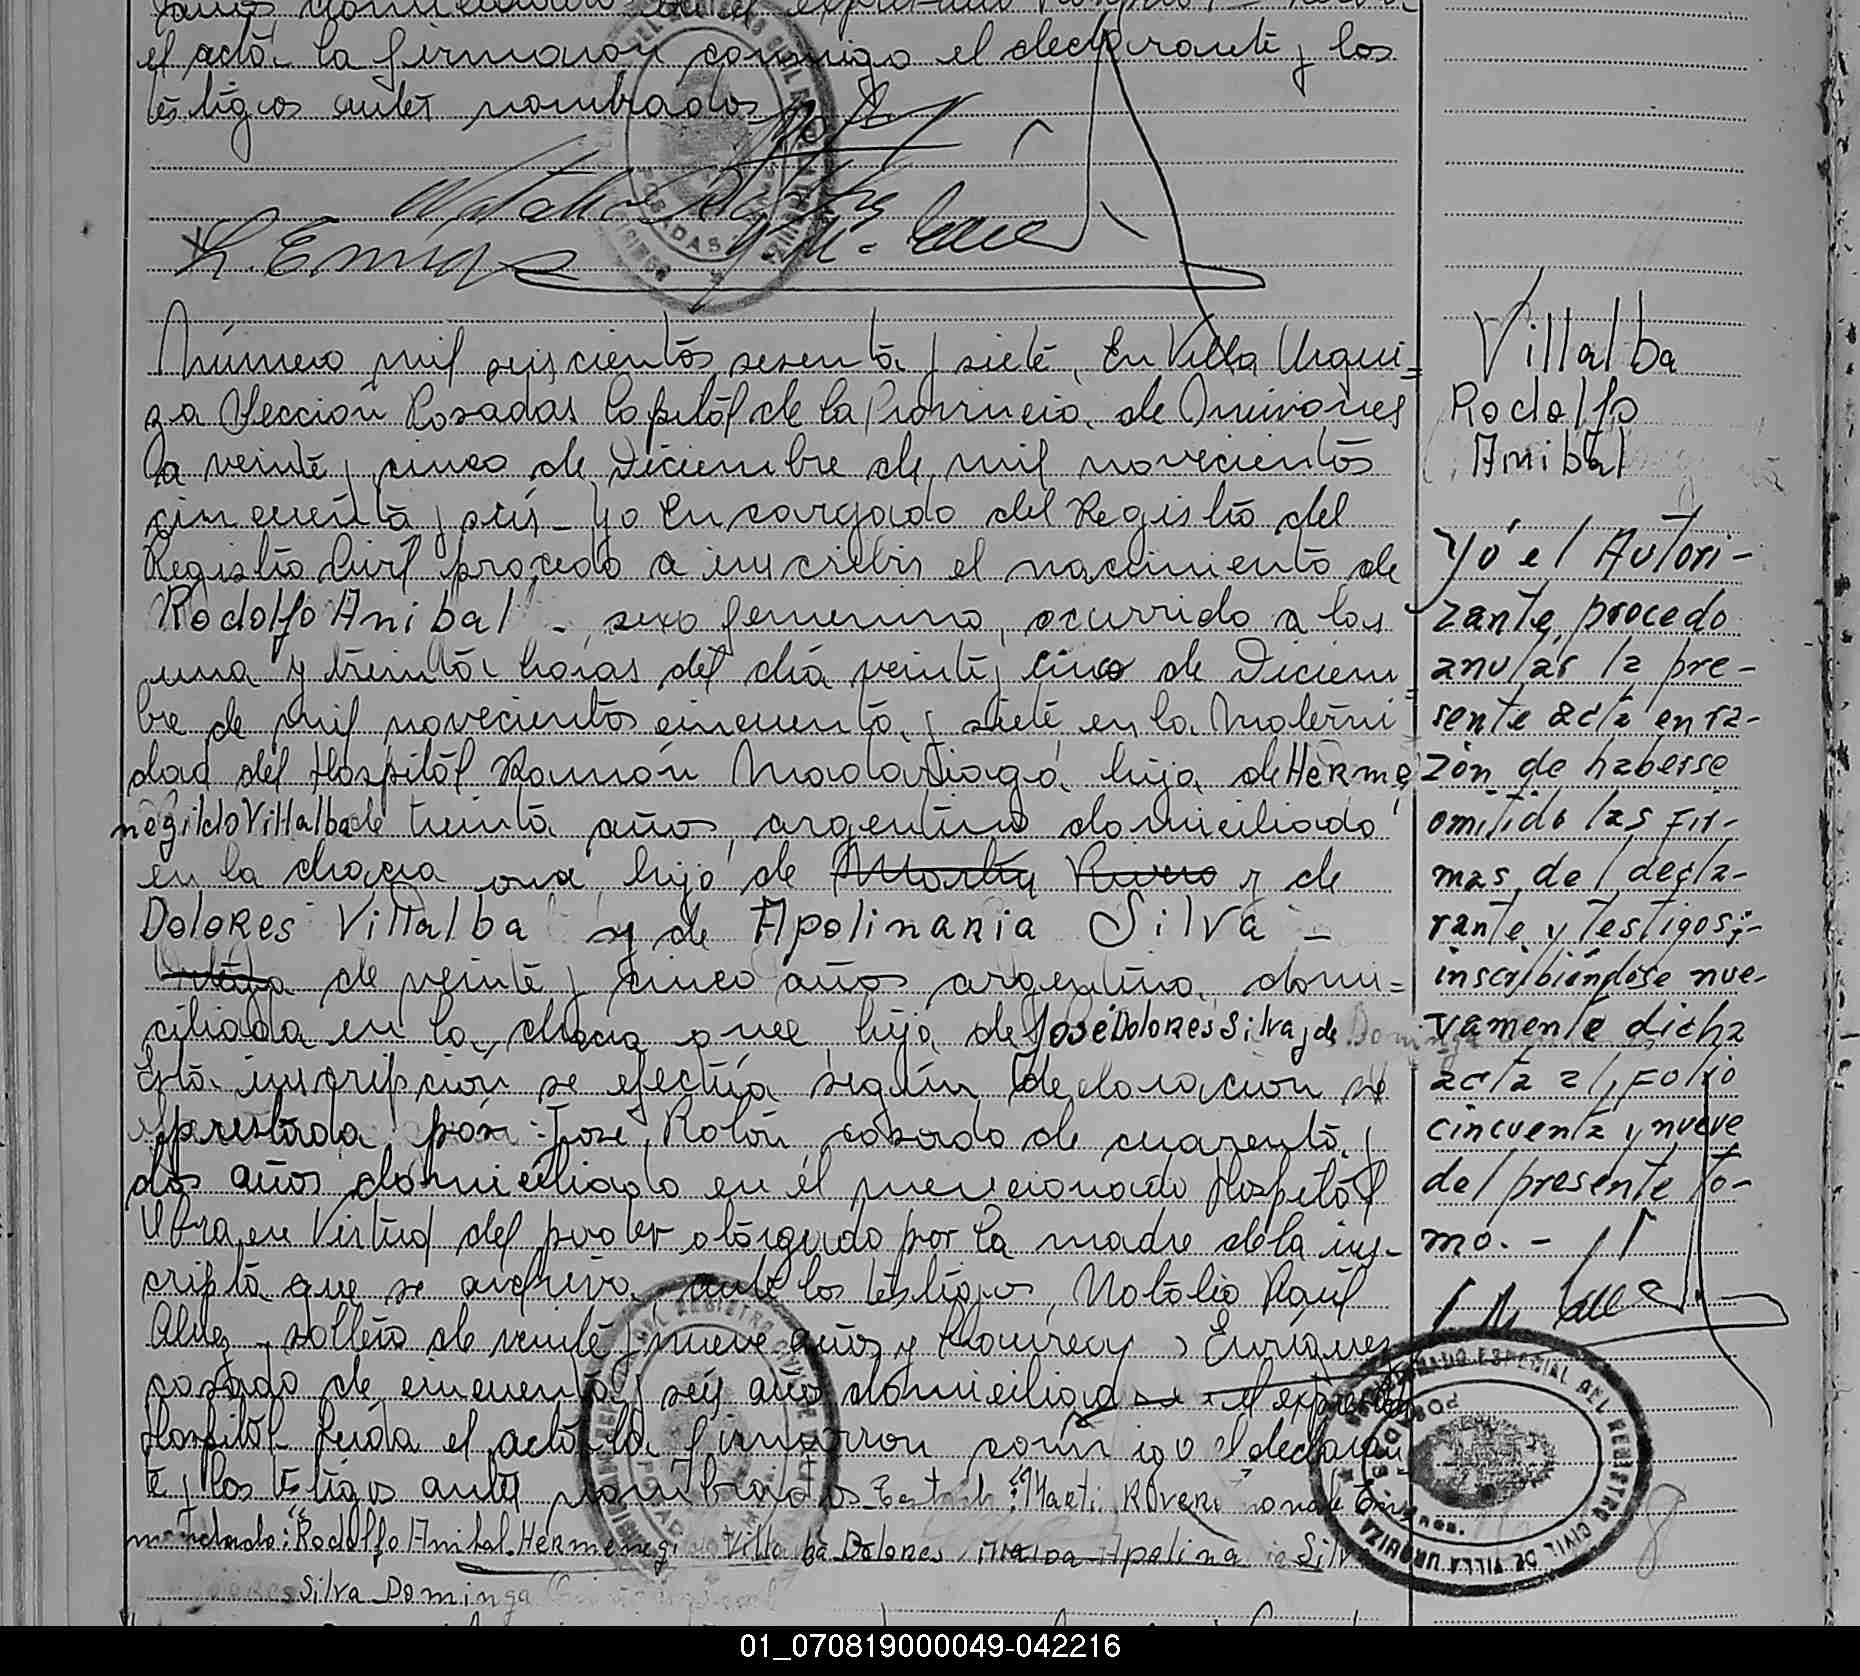 el acto la firmaron conmigo el declarante y los
testigos antes nombrados
L. Enriq
Número mil seiscientos sesenta y siete, En Villa Urqui=
za Sección Posadas Capital de la Provincia de Misiones
a veinte y cinco de Diciembre de mil novecientos
cincuenta y seis - yo Encargado del Registro del
Registro Civil procedo a inscribir el nacimiento de
Rodolfo Anibal - sexo femenino, ocurrido a las
una y treinta horas del dia veinte y cinco de Diciem=
bre de mil novecientos cincuenta y siete en la Materni
dad del Hospital Ramón Madariaga hija de Herme
negildo Villalba de treinta años, argentino domiciliado
en la chacra hijo de Martin Rivero y de
Dolores Villalba y de Apolinaria Silva -
de veinte y cinco años argentina, domi=
ciliada en la chacra hija de José Dolores Silva y de
Esta inscripción se efectúa según declaración
prestada por: José Rolón casado de cuarenta y
dos años domiciliado en él mencionado Hospital
Obra en virtud del poder otorgado por la madre de la ins-
cripta que se archiva ante los testigos, Natalio Raúl
soltero de veinte y nueve años y Enriquez
casado de cincuenta y seis años domiciliados el expresado
Hospital Leída el acta la firmarron conmigo el declaran
te y los testigos antes nombrados
Rodolfo Anibal. Hermenegi Villa ba Dolores Apolina ia Silv
Silva Dominga
Villalba
Rodolfo
Anibal
Yó el Autori-
zante, procedo
anular la pre-
sente acta en ra-
zón de haberse
omitido las fir-
mas del decla-
rante y testigos;-
inscribiéndose nue-
vamente dicha
acta al folio
cincuenta y nueve
del presente to-
mo. -
POSADAS
REGISTRO CIVIL DE VILLA URQUIZA
POSADAS
Misiones.
01_070819000049-042216